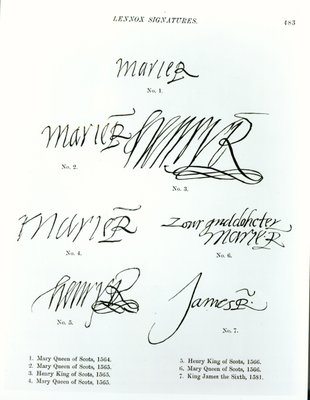 LENNOX SIGNATURES.
483
marie R
No. 1.
marie R
No. 2.
henry R
No. 3.
Marie R
No. 4.
Zour gud dohcter
Marie R
No. 6.
henry R
No. 5.
James R.
No. 7.
1. Mary Queen of Scots, 1564.
2. Mary Queen of Scots, 1565.
3. Henry King of Scots, 1565.
4. Mary Queen of Scots, 1565.
5. Henry King of Scots, 1566.
6. Mary Queen of Scots, 1566.
7. King James the Sixth, 1581.